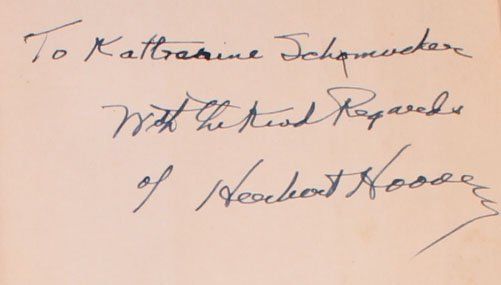 To Katherine Schomucker
With the Kind Regards
of Herbert Hoover